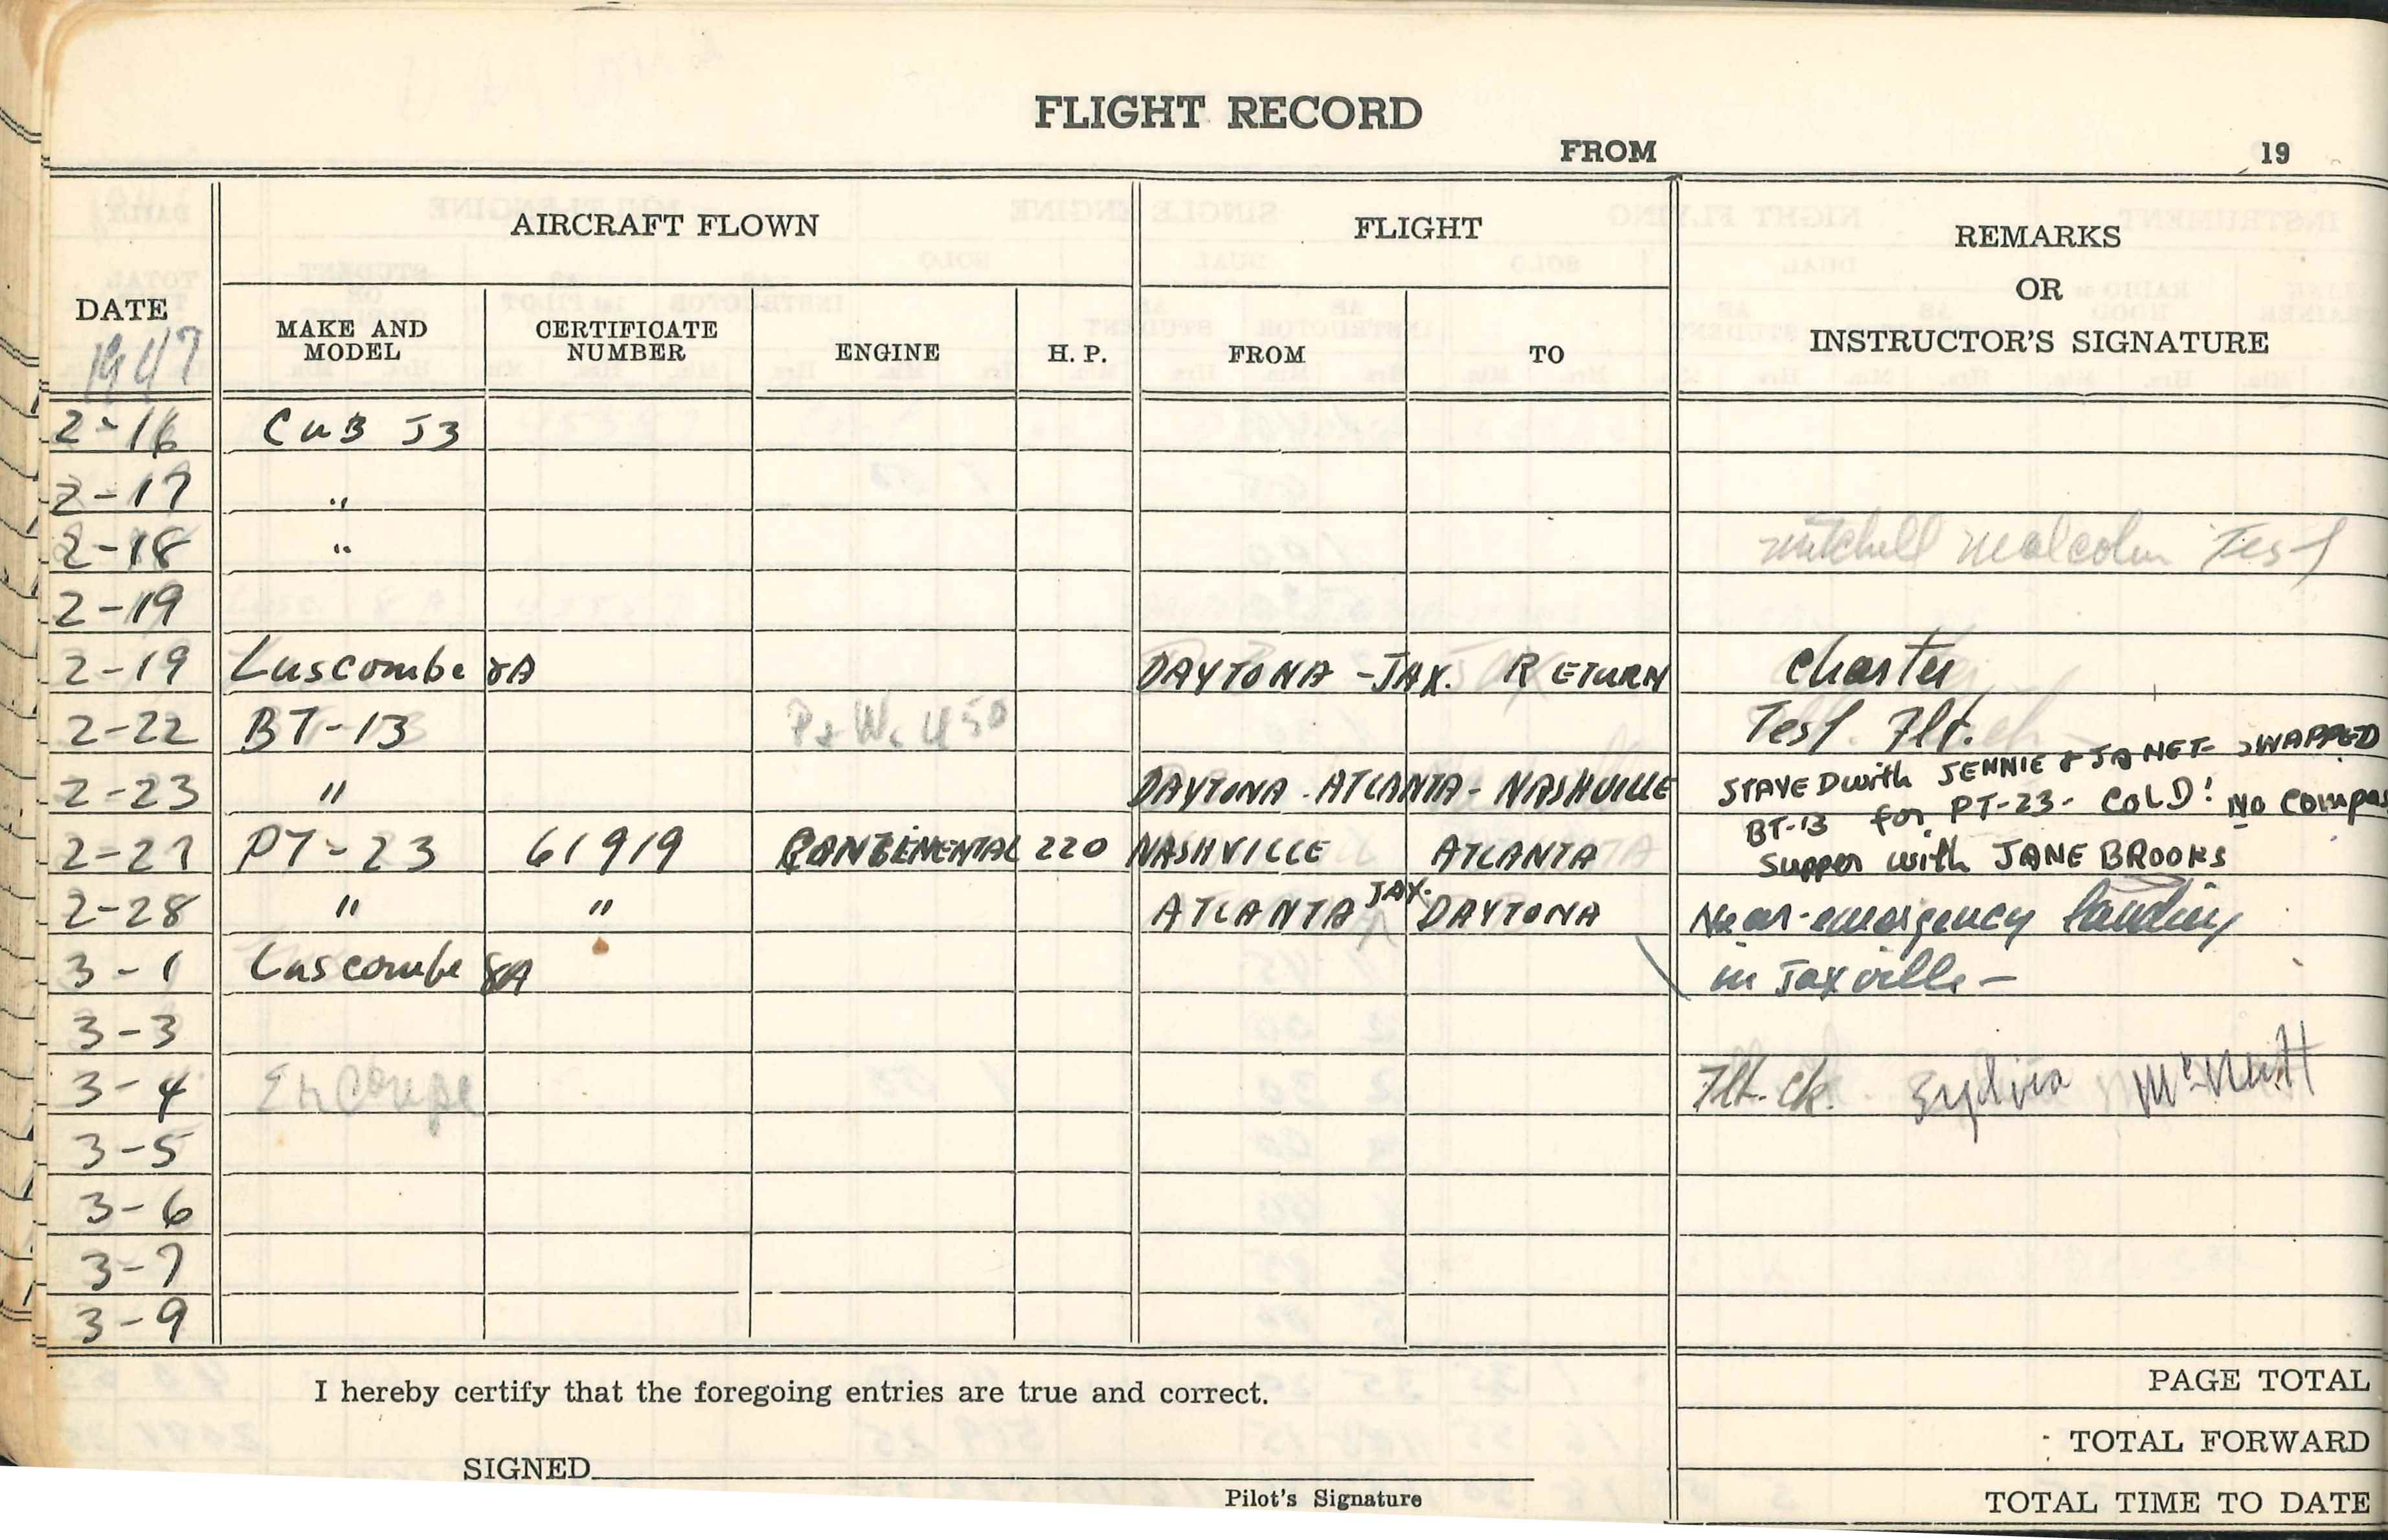 FLIGHT RECORD
FROM 19
DATE AIRCRAFT FLOWN FLIGHT REMARKS OR INSTRUCTOR'S SIGNATURE
1947 MAKE AND MODEL CERTIFICATE NUMBER ENGINE H. P. FROM TO
2-16 CUB J3
2-17 "
2-18 " Mitchell Malcolm Test
2-19
2-19 Luscombe 8A DAYTONA - JAX. RETURN Charter
2-22 BT-13 P+W. 450 Test. Flt.
2-23 " DAYTONA - ATLANTA - NASHVILLE STAYED with JENNIE & JANET - SWAPPED
BT-13 for PT-23 - COLD! NO Compas
2-27 PT-23 61919 CONTENENTAL 220 NASHVILLE ATLANTA Supper with JANE BROOKS
2-28 " " ATLANTA JAX. DAYTONA Near-emergency landing
3-1 Luscombe 8A in Jaxville -
3-3
3-4 ErCoupe Flt. ck. Sylvia McNutt
3-5
3-6
3-7
3-9
I hereby certify that the foregoing entries are true and correct.
PAGE TOTAL
TOTAL FORWARD
SIGNED
Pilot's Signature
TOTAL TIME TO DATE